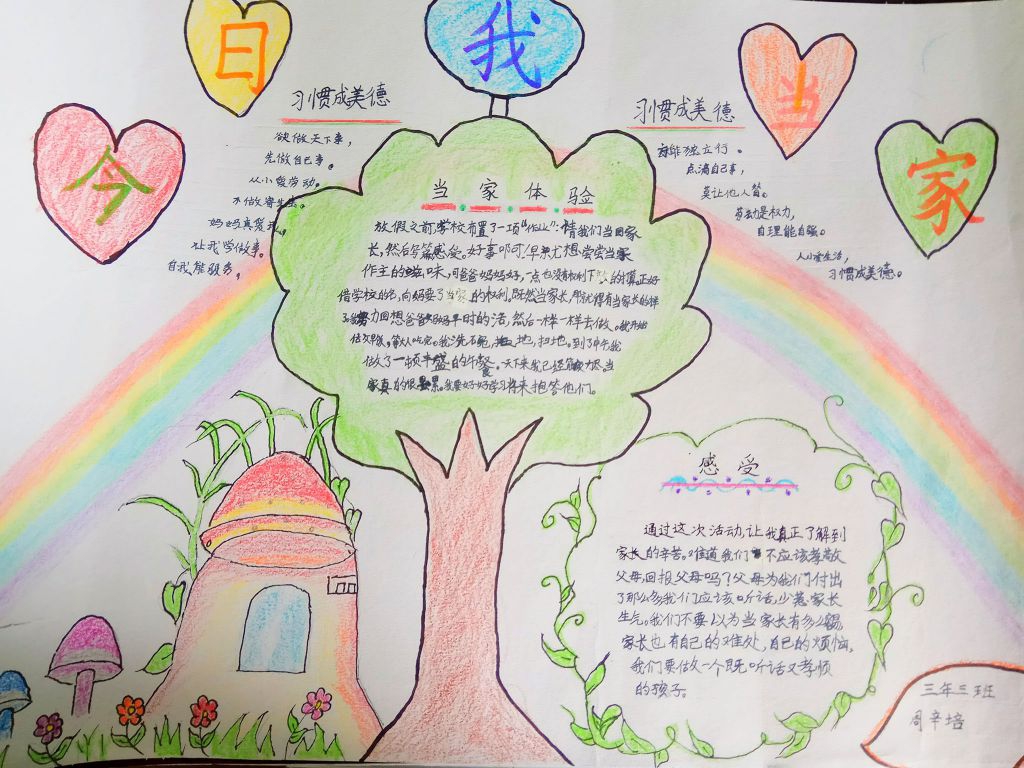 今日我当家
习惯成美德
欲做天下事,
先做自己事。
从小爱劳动。
不做寄生虫。
妈妈真爱我
让我学做事。
自我能服务。
习惯成美德
亦能独立行。
点滴自己事,
莫让他人管。
劳动是权力,
自理能自强。
人小会生活,
习惯成美德。
当家体验
放假之前,学校布置了一项“作业”:请我们当回家
长,然后写篇感受。好事叩可!早来尤想尝尝当家
作主的滋味,可爸爸妈妈好,一点也没有权利下的打算。正好
借学校的名,向妈要了当家的权利,既然当家长,那就得有当家长的样
了。我努力回想爸爸妈妈平时的活,然后一样一样去做。我开始
做早饭。等大人吃完。我洗石碗,拖地,扫地。到了中午我
做了一顿丰盛的午餐。一天下来我已经筋疲力尽,当
家真的很累。我要好好学习将来抱答他们。
感受
通过这次活动,让我真正了解到
家长的辛苦。难道我们不应该孝敬
父母,回报父母吗?父母为我们付出
了那么多我们应该听话,少惹家长
生气。我们不要以为当家长有多么
家长也有自己的难处,自己的烦恼,
我们要做一个既听话又孝顺
的孩子。
三年三班
周辛培